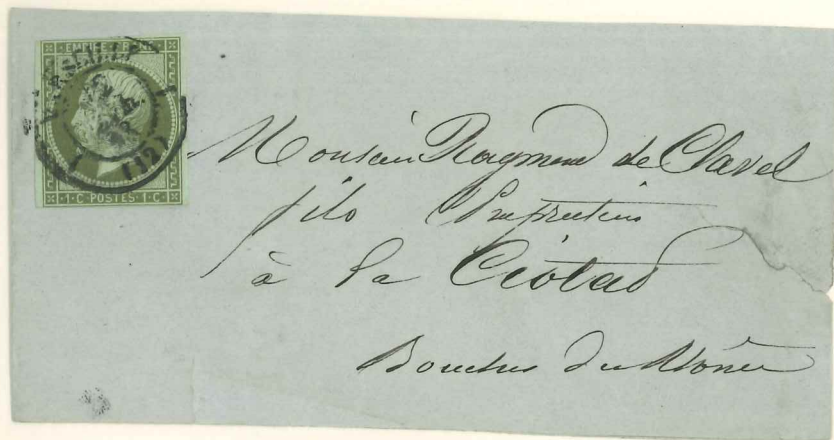 EMPIRE FRANC
MARSEILLE
(12)
1·C·POSTES·1·C·
Monsieur Raymond de Clavel
fils Propriétaire
à la Ciotad
Bouches du Rhône